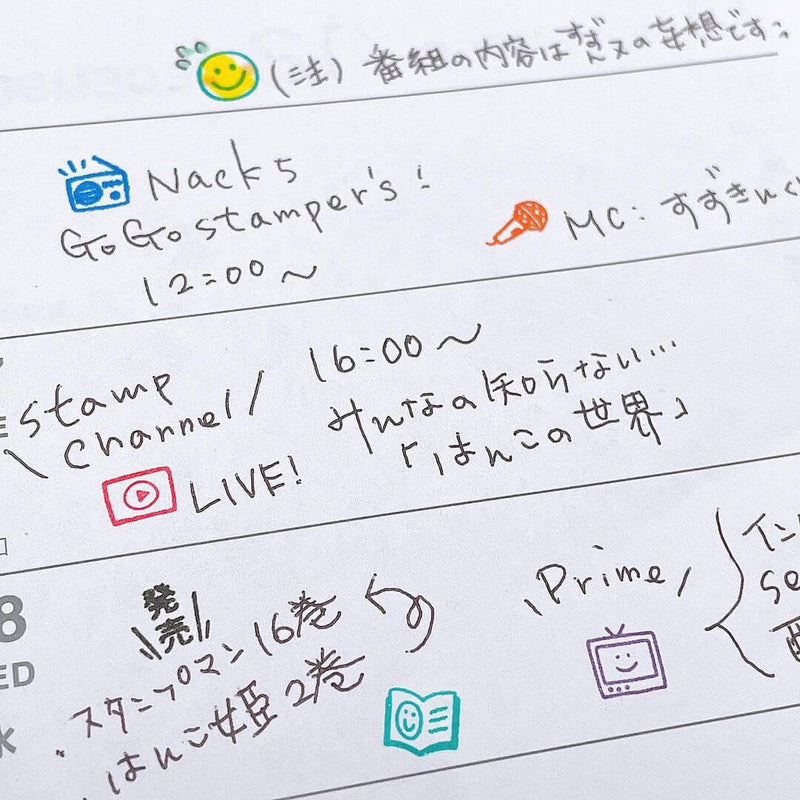 (注) 番組の内容はすずきんの妄想です
Nack5
GoGo stamper's!
12:00〜
MC: すずきんぐ
stamp
channel
LIVE!
16:00〜
みんなの知らない…
「はんこの世界」
8
ED
水
発売
・スタンプマン 16巻
・はんこ姫 2巻
Prime
イン
se